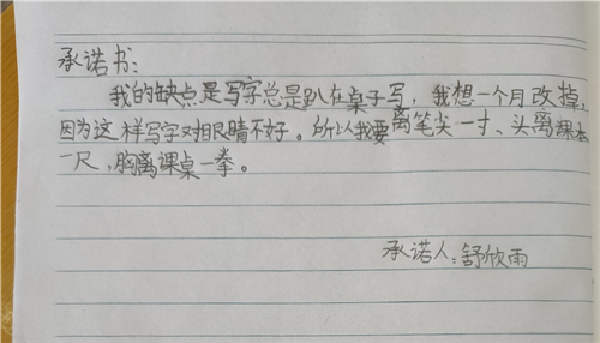 承诺书:
我的缺点是写字总是趴在桌子写，我想一个月改掉，
因为这样写字对眼睛不好。所以我要离笔尖一寸、头离课本
一尺，胸离课桌一拳。
承诺人:舒欣雨